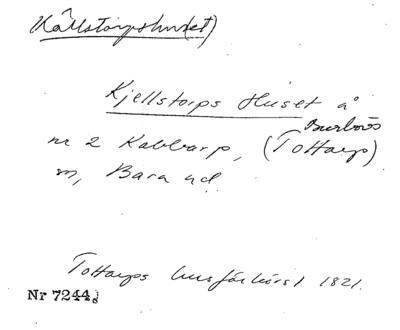 Källstorpshuset)
Kjellstorps Huset å
Burlövs
nr 2 Kabbarp, (Tottarp)
sn, Bara hd.
Tottarps husförhörsl. 1821.
Nr 7244